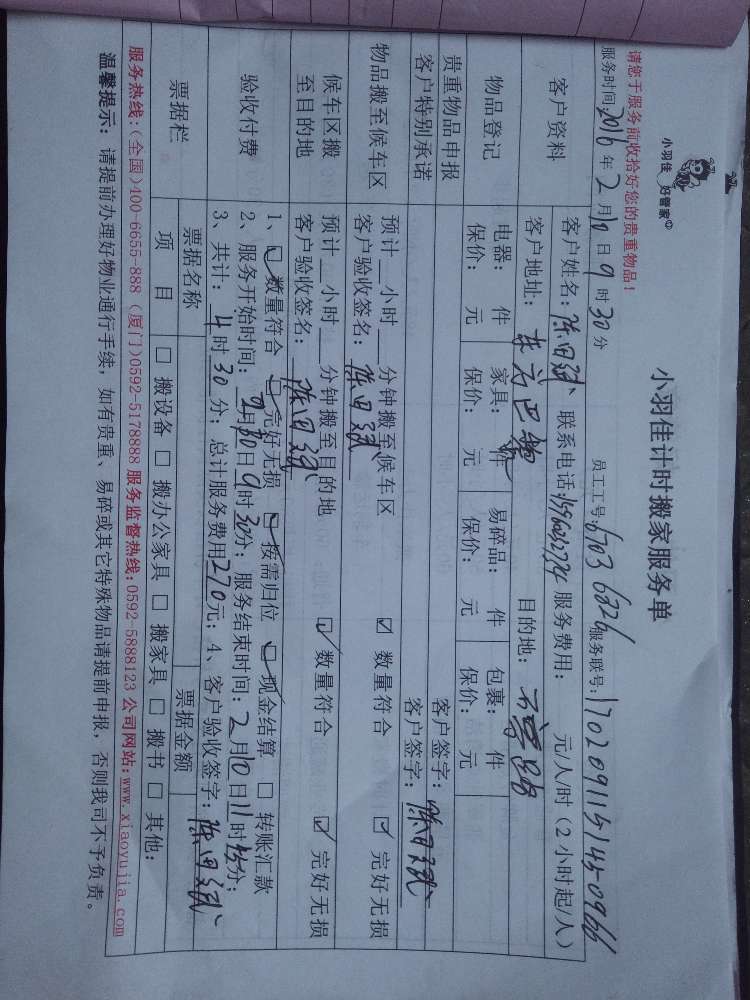 小羽佳 好管家
小羽佳计时搬家服务单
请您于服务前收拾好您的贵重物品！
服务时间：2016年2月10日9时30分 员工工号：6703 6226 服务联号：17020911514509 66
客户资料
客户姓名：陈日斌 联系电话： 服务费用： 元/人/时（2小时起/人）
客户地址： 目的地：
物品登记
电器： 件 家具： 件 易碎品： 件 包裹： 件
保价： 元 保价： 元 保价： 元 保价： 元
贵重物品申报 客户签字：
客户特别承诺 客户签字：陈日斌
物品搬至候车区
预计__小时__分钟搬至候车区 ☑ 数量符合 ☑ 完好无损
客户验收签名：陈日斌
候车区搬至目的地
预计__小时__分钟搬至目的地 ☑ 数量符合 ☑ 完好无损
客户验收签名：陈日斌
验收付费
1、☑ 数量符合 ☑ 完好无损 ☑ 按需归位 ☑ 现金结算 □ 转账汇款
2、服务开始时间：2月10日9时30分；服务结束时间：2月10日11时45分；
3、共计：4时30分；总计服务费用270元；4、客户验收签字：陈日斌
票据栏
票据名称 票据金额
项目 □ 搬设备 □ 搬办公家具 □ 搬家具 □ 搬书 □ 其他：
服务热线：(全国)400-6655-888 (厦门)0592-5178888 服务监督热线：0592-5888123 公司网站：www.xiaoyujia.com
温馨提示：请提前办理好物业通行手续，如有贵重、易碎或其它特殊物品请提前申报，否则我司不予负责。